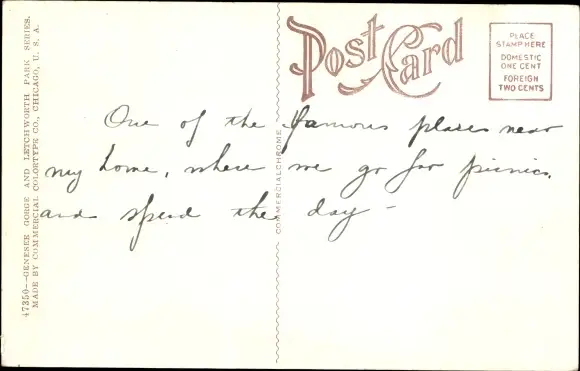 Post Card
PLACE
STAMP HERE
DOMESTIC
ONE CENT
FOREIGN
TWO CENTS
One of the famous places near
my home, where we go for picnics,
and spend the day –
COMMERCIALCHROME
47350—GENESEE GORGE AND LETCHWORTH PARK SERIES.
MADE BY COMMERCIAL COLORTYPE CO., CHICAGO, U. S. A.